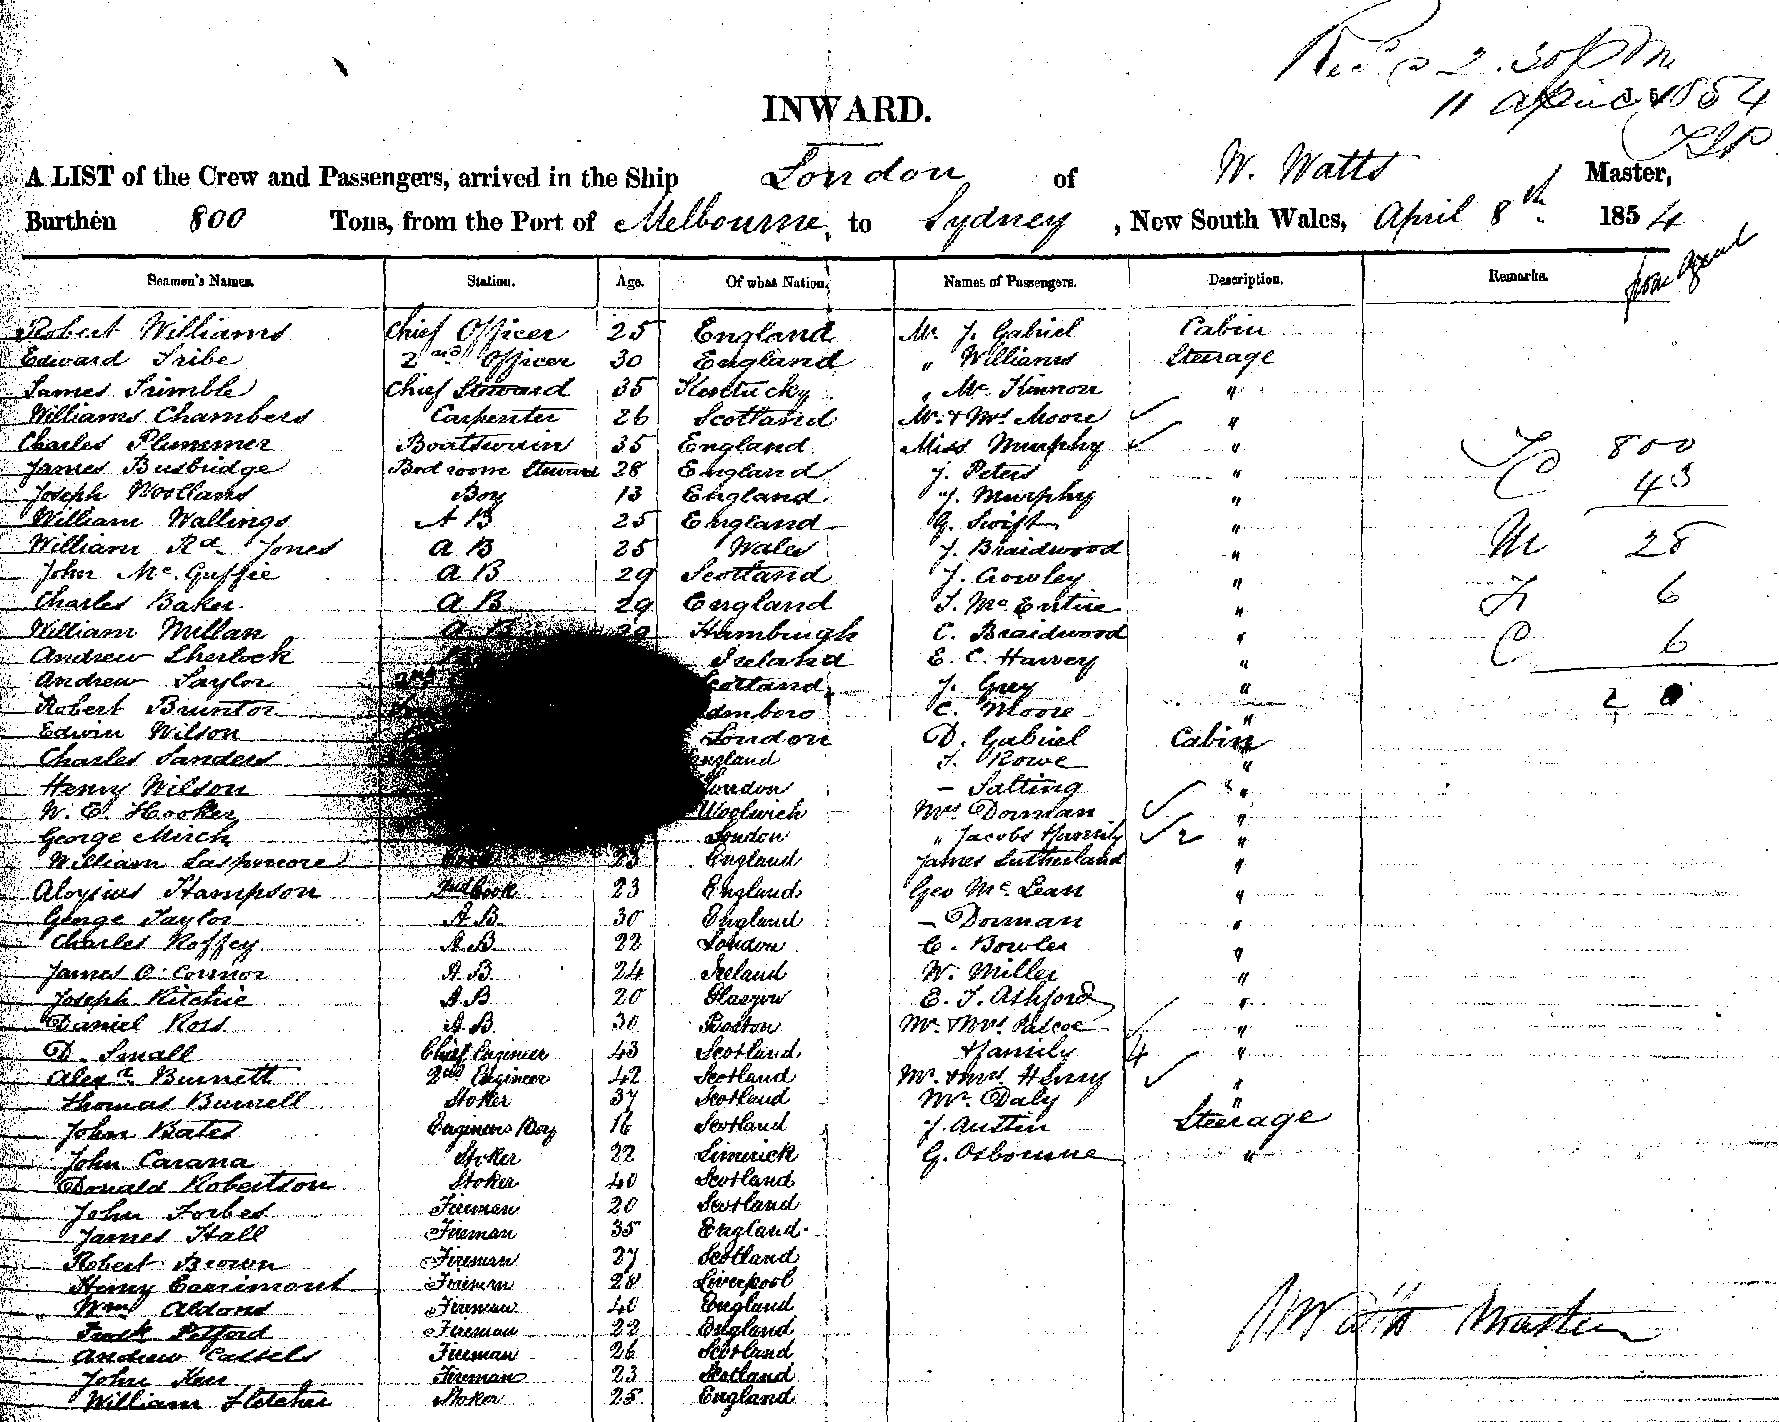 Rec'd @ 2.30 PM
11 April 1854
INWARD.
A LIST of the Crew and Passengers, arrived in the Ship London of W. Watts Master,
Burthen 800 Tons, from the Port of Melbourne, to Sydney, New South Wales, April 8th 1854
Seamen's Names. Station. Age. Of what Nation. Names of Passengers. Description. Remarks.
Robert Williams Chief Officer 25 England Mr. J. Gabriel Cabin
Edward Tribe 2nd Officer 30 England " Williams Steerage
James Trimble Chief Steward 35 Kentucky " Mc. Kinnon "
Williams Chambers Carpenter 26 Scotland Mr. & Mrs Moore "
Charles Plummer Boatswain 35 England Miss Murphy " 800
James Busbridge Bed room Steward 28 England J. Peters "
Joseph Woollams Boy 13 England J. Murphy " 43
William Wallings A B 25 England G. Swift "
William Rd. Jones A B 25 Wales J. Braidwood " M 28
John Mc. Guffie A B 29 Scotland J. Crowley "
Charles Baker A B 29 England T. Mc Entire " F 6
William Millan A B Hamburgh C. Braidwood "
Andrew Sherlock Ireland E. C. Harvey " C 6
Andrew Taylor 2nd Scotland J. Grey "
Robert Brunton C. Moore "
Edwin Wilson London D. Gabriel Cabin
Charles Sanders England T. Rowe "
Henry Wilson London – Salting "
W. E. Hooker Woolwich Mrs Dorman "
George Mirch London " Jacobs & family 2 "
William Laspmore 23 England James Sutherland "
Aloysius Hampson 2nd Cook 23 England Geo Mc Lean "
George Taylor A B 30 England – Dorman "
Charles Roffey A B 22 London C. Bowler "
James O'Connor A B 24 Ireland W. Miller "
Joseph Ritchie A B 20 Glasgow E. T. Ashford "
Daniel Ross A B 30 Boston Mr. & Mrs Pascoe "
D. Small Chief Engineer 43 Scotland & family 4 "
Alexr. Burnett 2nd Engineer 42 Scotland Mr. & Mrs Henry "
Thomas Burnell Stoker 37 Scotland Mr. Daly "
John Bates Engineers Boy 16 Scotland J. Austin Steerage
John Carana Stoker 22 Limerick G. Osbourne "
Donald Robertson Stoker 40 Scotland
John Forbes Fireman 20 Scotland
James Hall Fireman 35 England
Robert Brown Fireman 27 Scotland
Henry Carrimont Fireman 28 Liverpool
Wm Aldons Fireman 40 England
Petford Fireman 22 England
Andrew Cassels Fireman 26 Scotland
John Kerr Fireman 23 Scotland
William Fletcher Stoker 25 England
W Watts Master